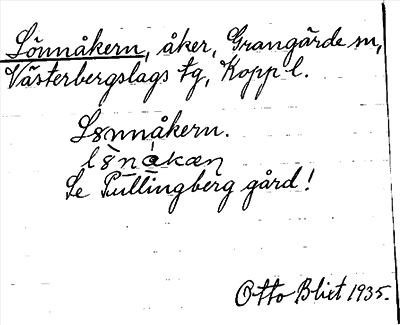 Lönnåkern, åker, Grangärde sn,
Västerbergslags tg, Kopp l.
Lönnåkern.
Se Pullingberg gård!
Otto Blixt 1935.